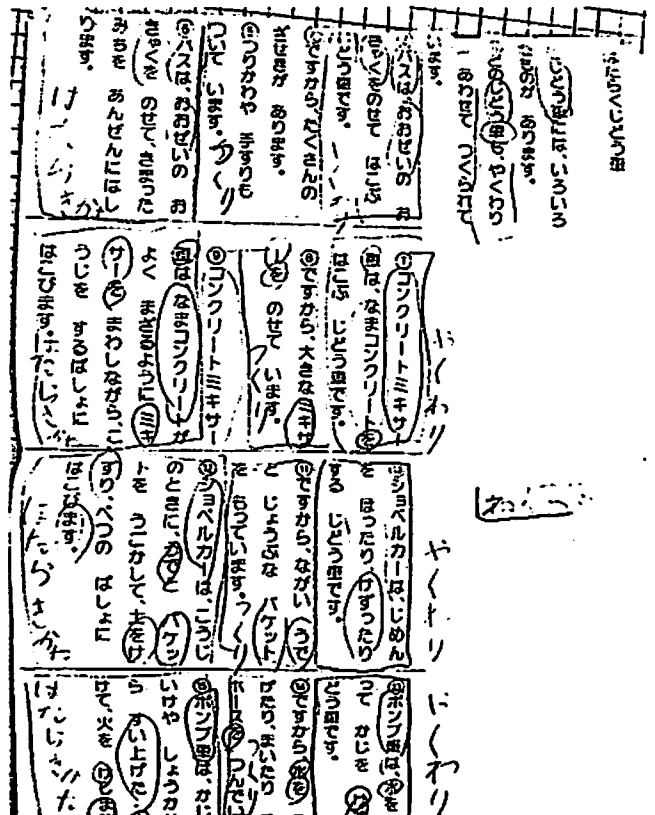 はたらくじどう車
じどう車には、いろいろ
なものが あります。
どのじどう車も、やくわり
に あわせて つくられて
います。
バスは、おおぜいの お
きゃくをのせて はこぶ
じどう車です。
ですから、たくさんの
ざせきが あります。
⑤つりかわや 手すりも
ついて います。
つくり
⑥バスは、おおぜいの お
きゃくを のせて、きまった
みちを あんぜんにはし
ります。
やくわり
⑦コンクリートミキサー
車は、なまコンクリートを
はこぶ じどう車です。
⑧ですから、大きな ミキサ
ーを のせて います。
つくり
⑨コンクリートミキサー
車は なまコンクリートが
よく まざるように ミキ
サーを まわしながら、こ
うじを するばしょに
はこびます。
はたらきかた
やくわり
ショベルカーは、じめん
を ほったり けずったり
する じどう車です。
⑪ですから、ながい うで
と じょうぶな バケット
を もっています。
つくり
⑫ショベルカーは、こうじ
のときに、うでと バケッ
トを うごかして、土をけ
ずり、べつの ばしょに
はこびます。
はたらきかた
やくわり
⑬ポンプ車は、水を
って かじを
どう車です。
⑭ですから 水を
げたり、まいたり
ホースを つんでい
つくり
⑮ポンプ車は、かじ
いけや しょうか
ら すい上げた
けて、火を けしま
はたらきかた